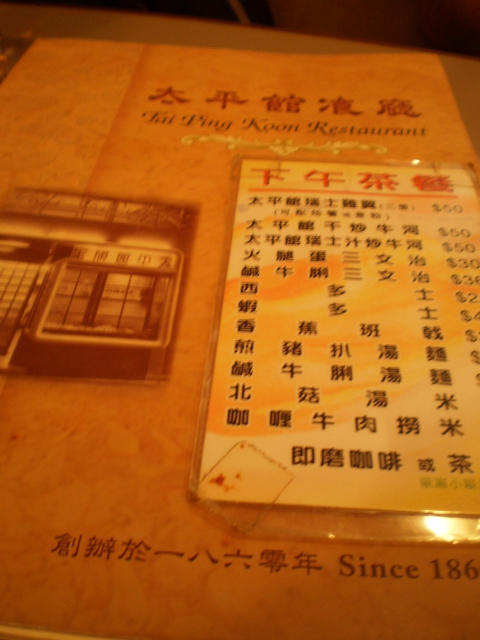 太平館飡廳
Tai Ping Koon Restaurant
下午茶餐
太平館瑞士雞翼(三隻) $50
太平館干炒牛河 $50
太平館瑞士汁炒牛河 $50
火腿蛋三文治 $30
鹹牛脷三文治
西多士
蝦多士
香蕉班戟
煎豬扒湯麵
鹹牛脷湯麵
北菇湯米
咖喱牛肉撈米
即磨咖啡 或 茶
創辦於一八六零年 Since 186